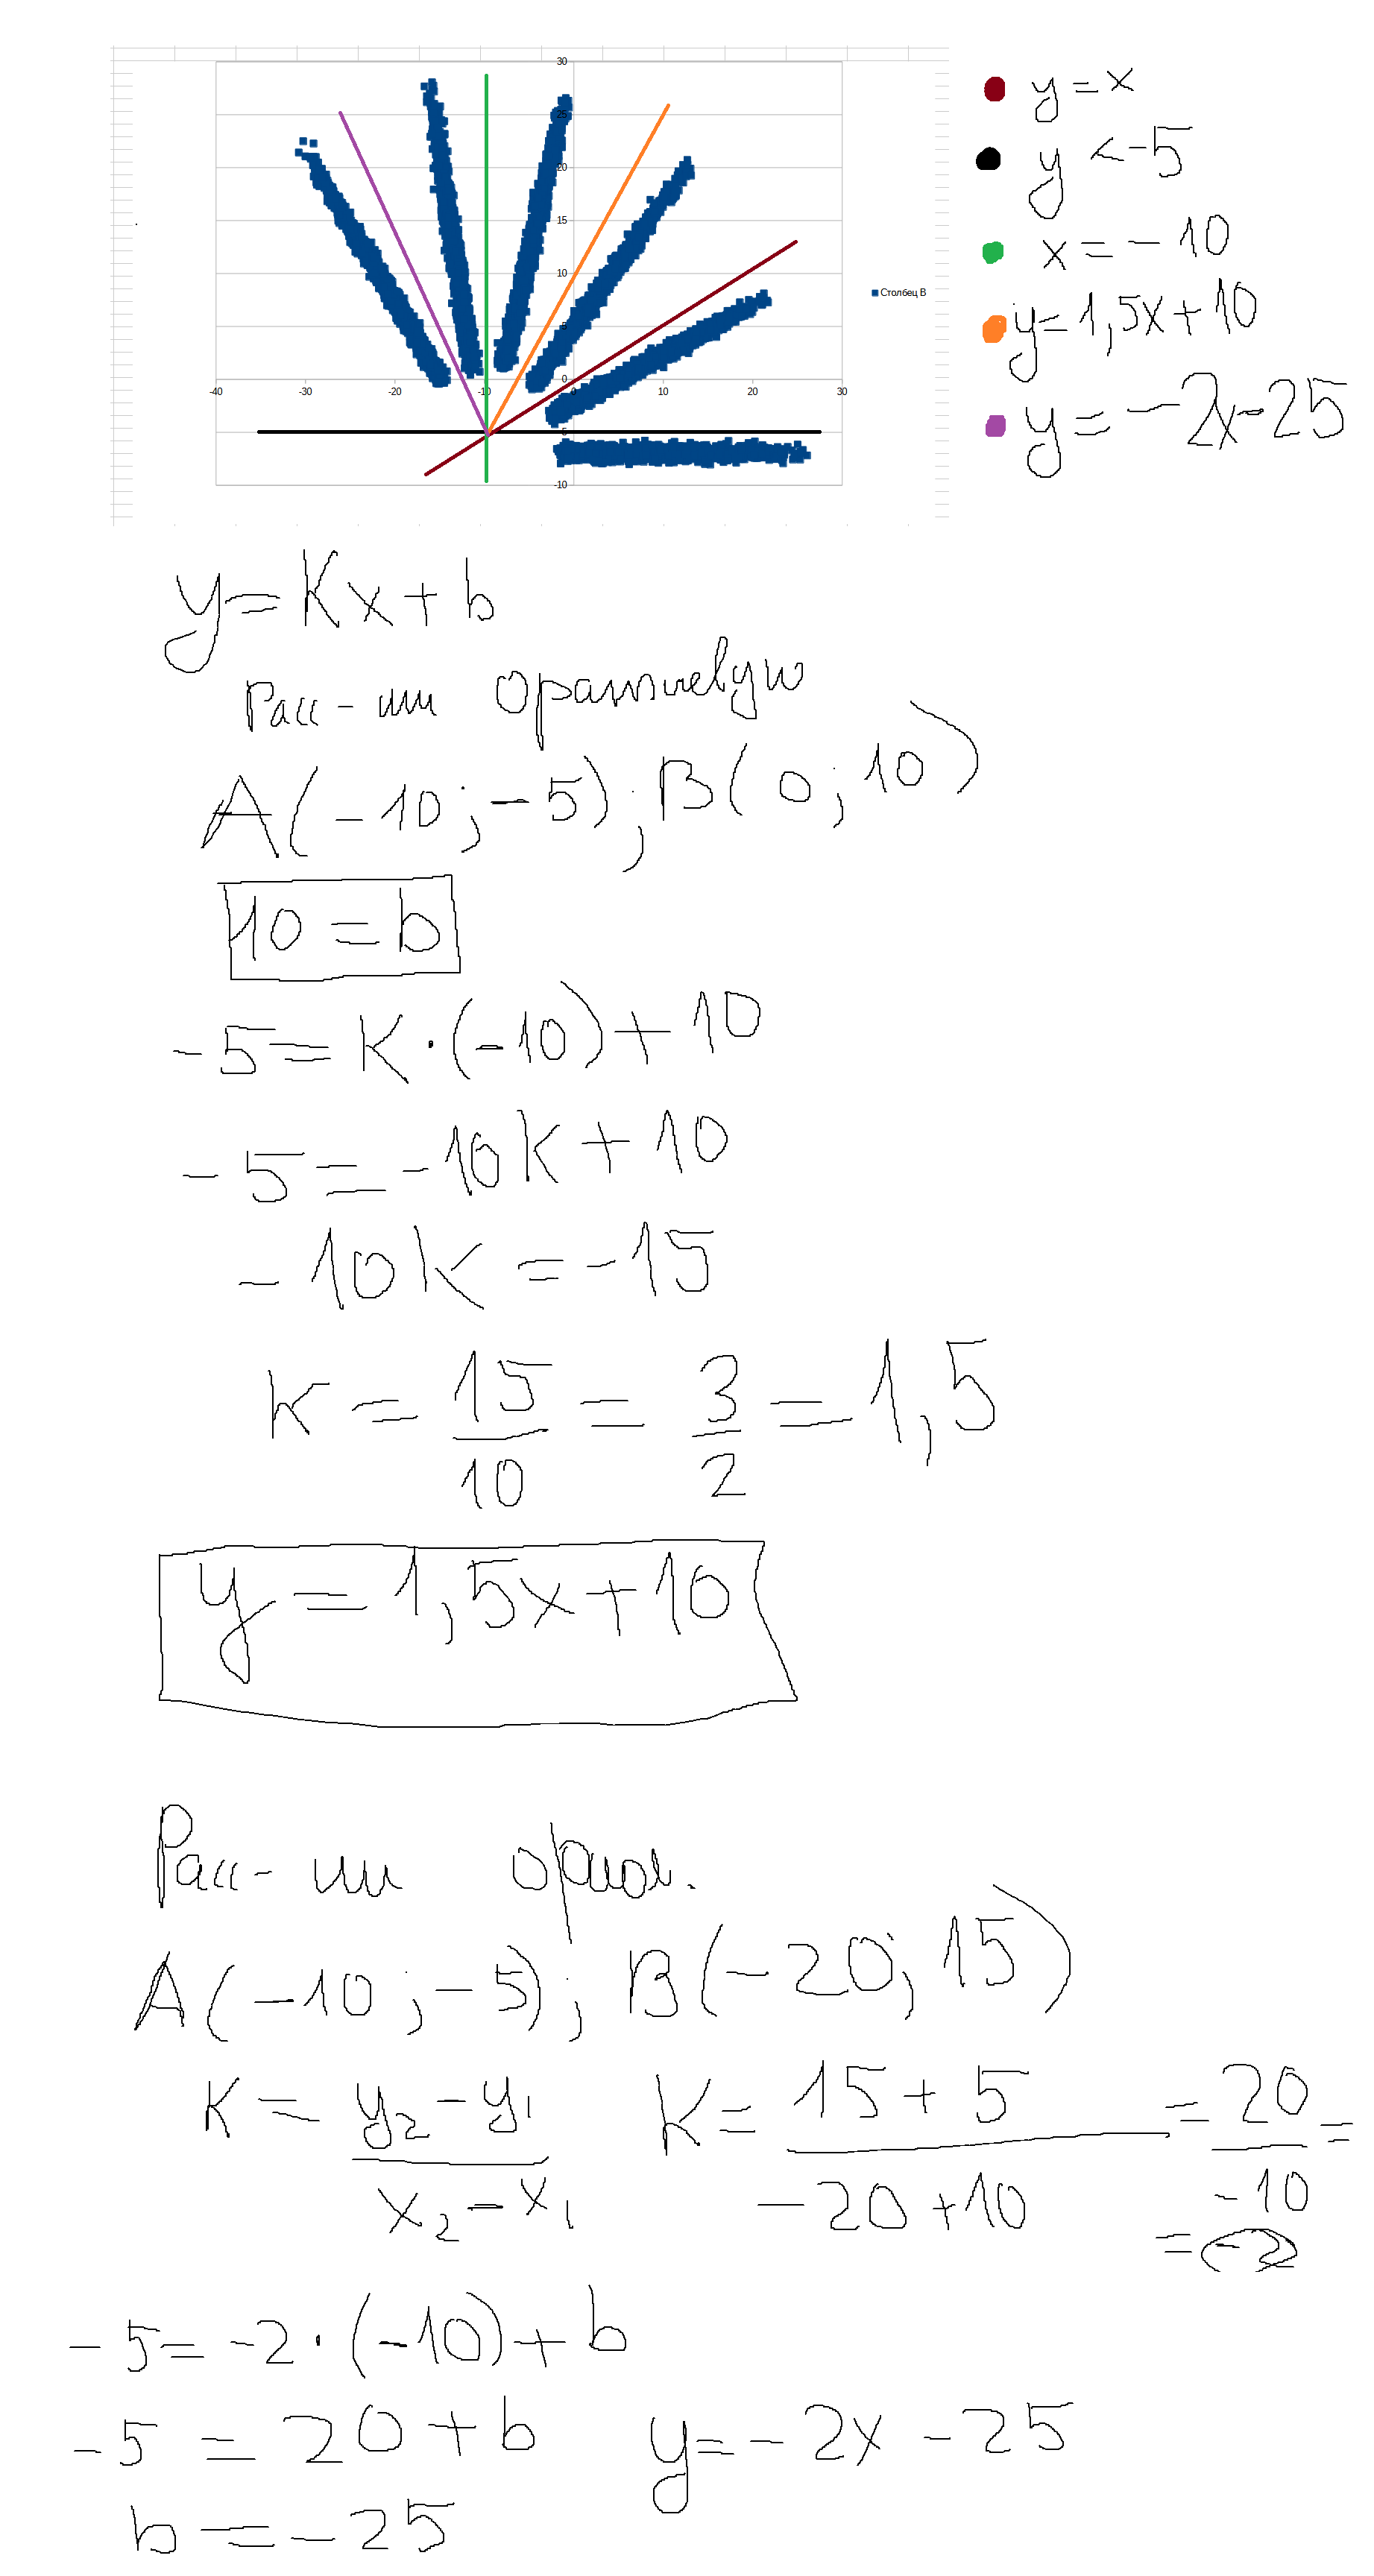 30
25
20
15
10
5
0
-40 -30 -20 -10 0 10 20 30
-5
-10
Столбец B
y = x
y < -5
x = - 10
y = 1,5x + 10
y = - 2x - 25
y = Kx + b
Расс-им оранжевую
A( - 10 ; - 5) ; B( 0 ; 10 )
10 = b
- 5 = K · (-10) + 10
- 5 = - 10K + 10
- 10K = - 15
K = 15/10 = 3/2 = 1,5
y = 1,5x + 10
Расс-им
A( - 10 ; - 5) ; B( - 20 ; 15 )
K = y₂ - y₁ / x₂ - x₁ K = 15 + 5 / -20 + 10 = 20 / -10 =
= -2
- 5 = -2 · (-10) + b
- 5 = 20 + b y = - 2x - 25
b = - 25